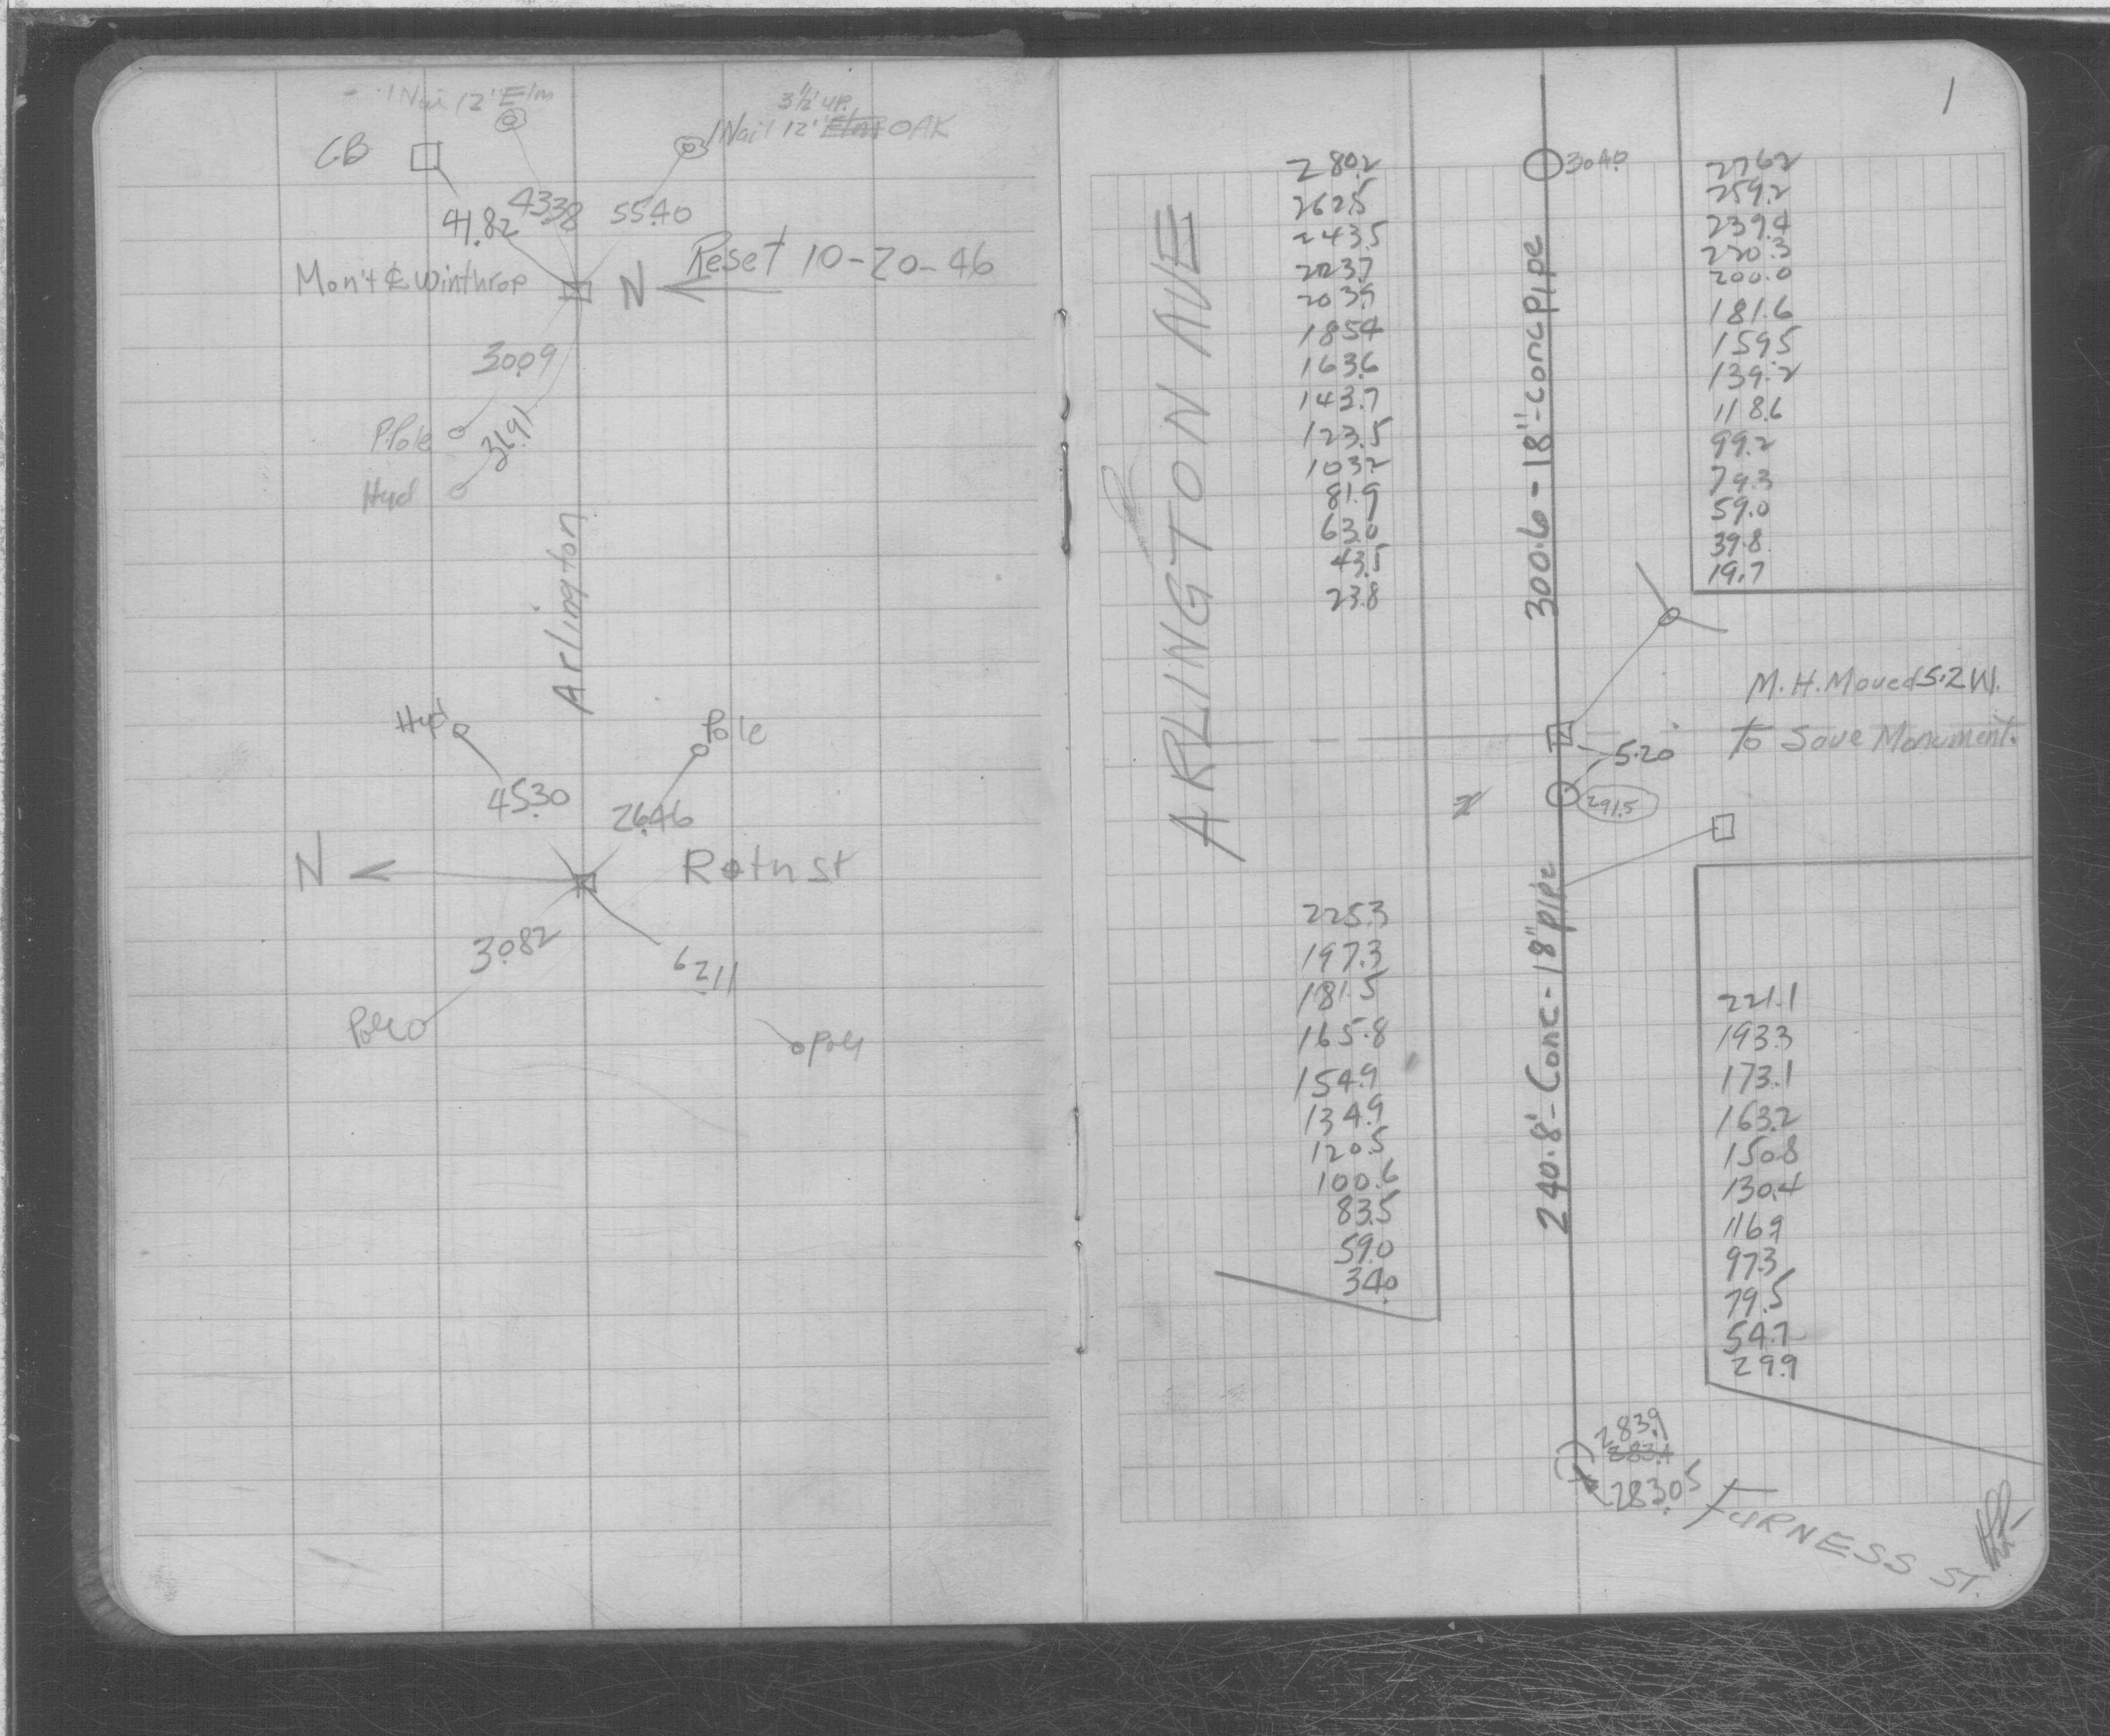 1 Nail 12" Elm
3½' up.
1 Nail 12" Elm OAK
CB
41.82
43.38
55.40
Reset 10-20-46
Mon't & Winthrop
N
30.09
P.Pole
36.91
Hyd
Arlington
Hyd
Pole
45.30
26.46
N
Roth St
30.82
62.11
Pole
Pole
1
ARLINGTON AVE
280.2
262.5
243.5
223.7
203.9
185.4
163.6
143.7
123.5
103.2
81.9
63.0
43.5
23.8
304.0
300.6 - 18" - conc pipe
276.2
259.2
239.4
220.3
200.0
181.6
159.5
139.2
118.6
99.2
79.3
59.0
39.8
19.7
M.H. Moved 5.2 W.
to Save Monument.
5.20
291.5
225.3
197.3
181.5
165.8
154.9
134.9
120.5
100.6
83.5
59.0
34.0
240.8' - Conc - 18" pipe
221.1
193.3
173.1
163.2
150.8
130.4
116.9
97.3
79.5
54.7
29.9
283.9
283.4
283.05
FURNESS ST.